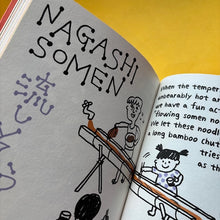 NAGASHI
SOMEN
流しそ
When the temper
unbearably hot ar
we have a fun ac
"flowing somen noo
We let these noodl
a long bamboo chut
tries
as th